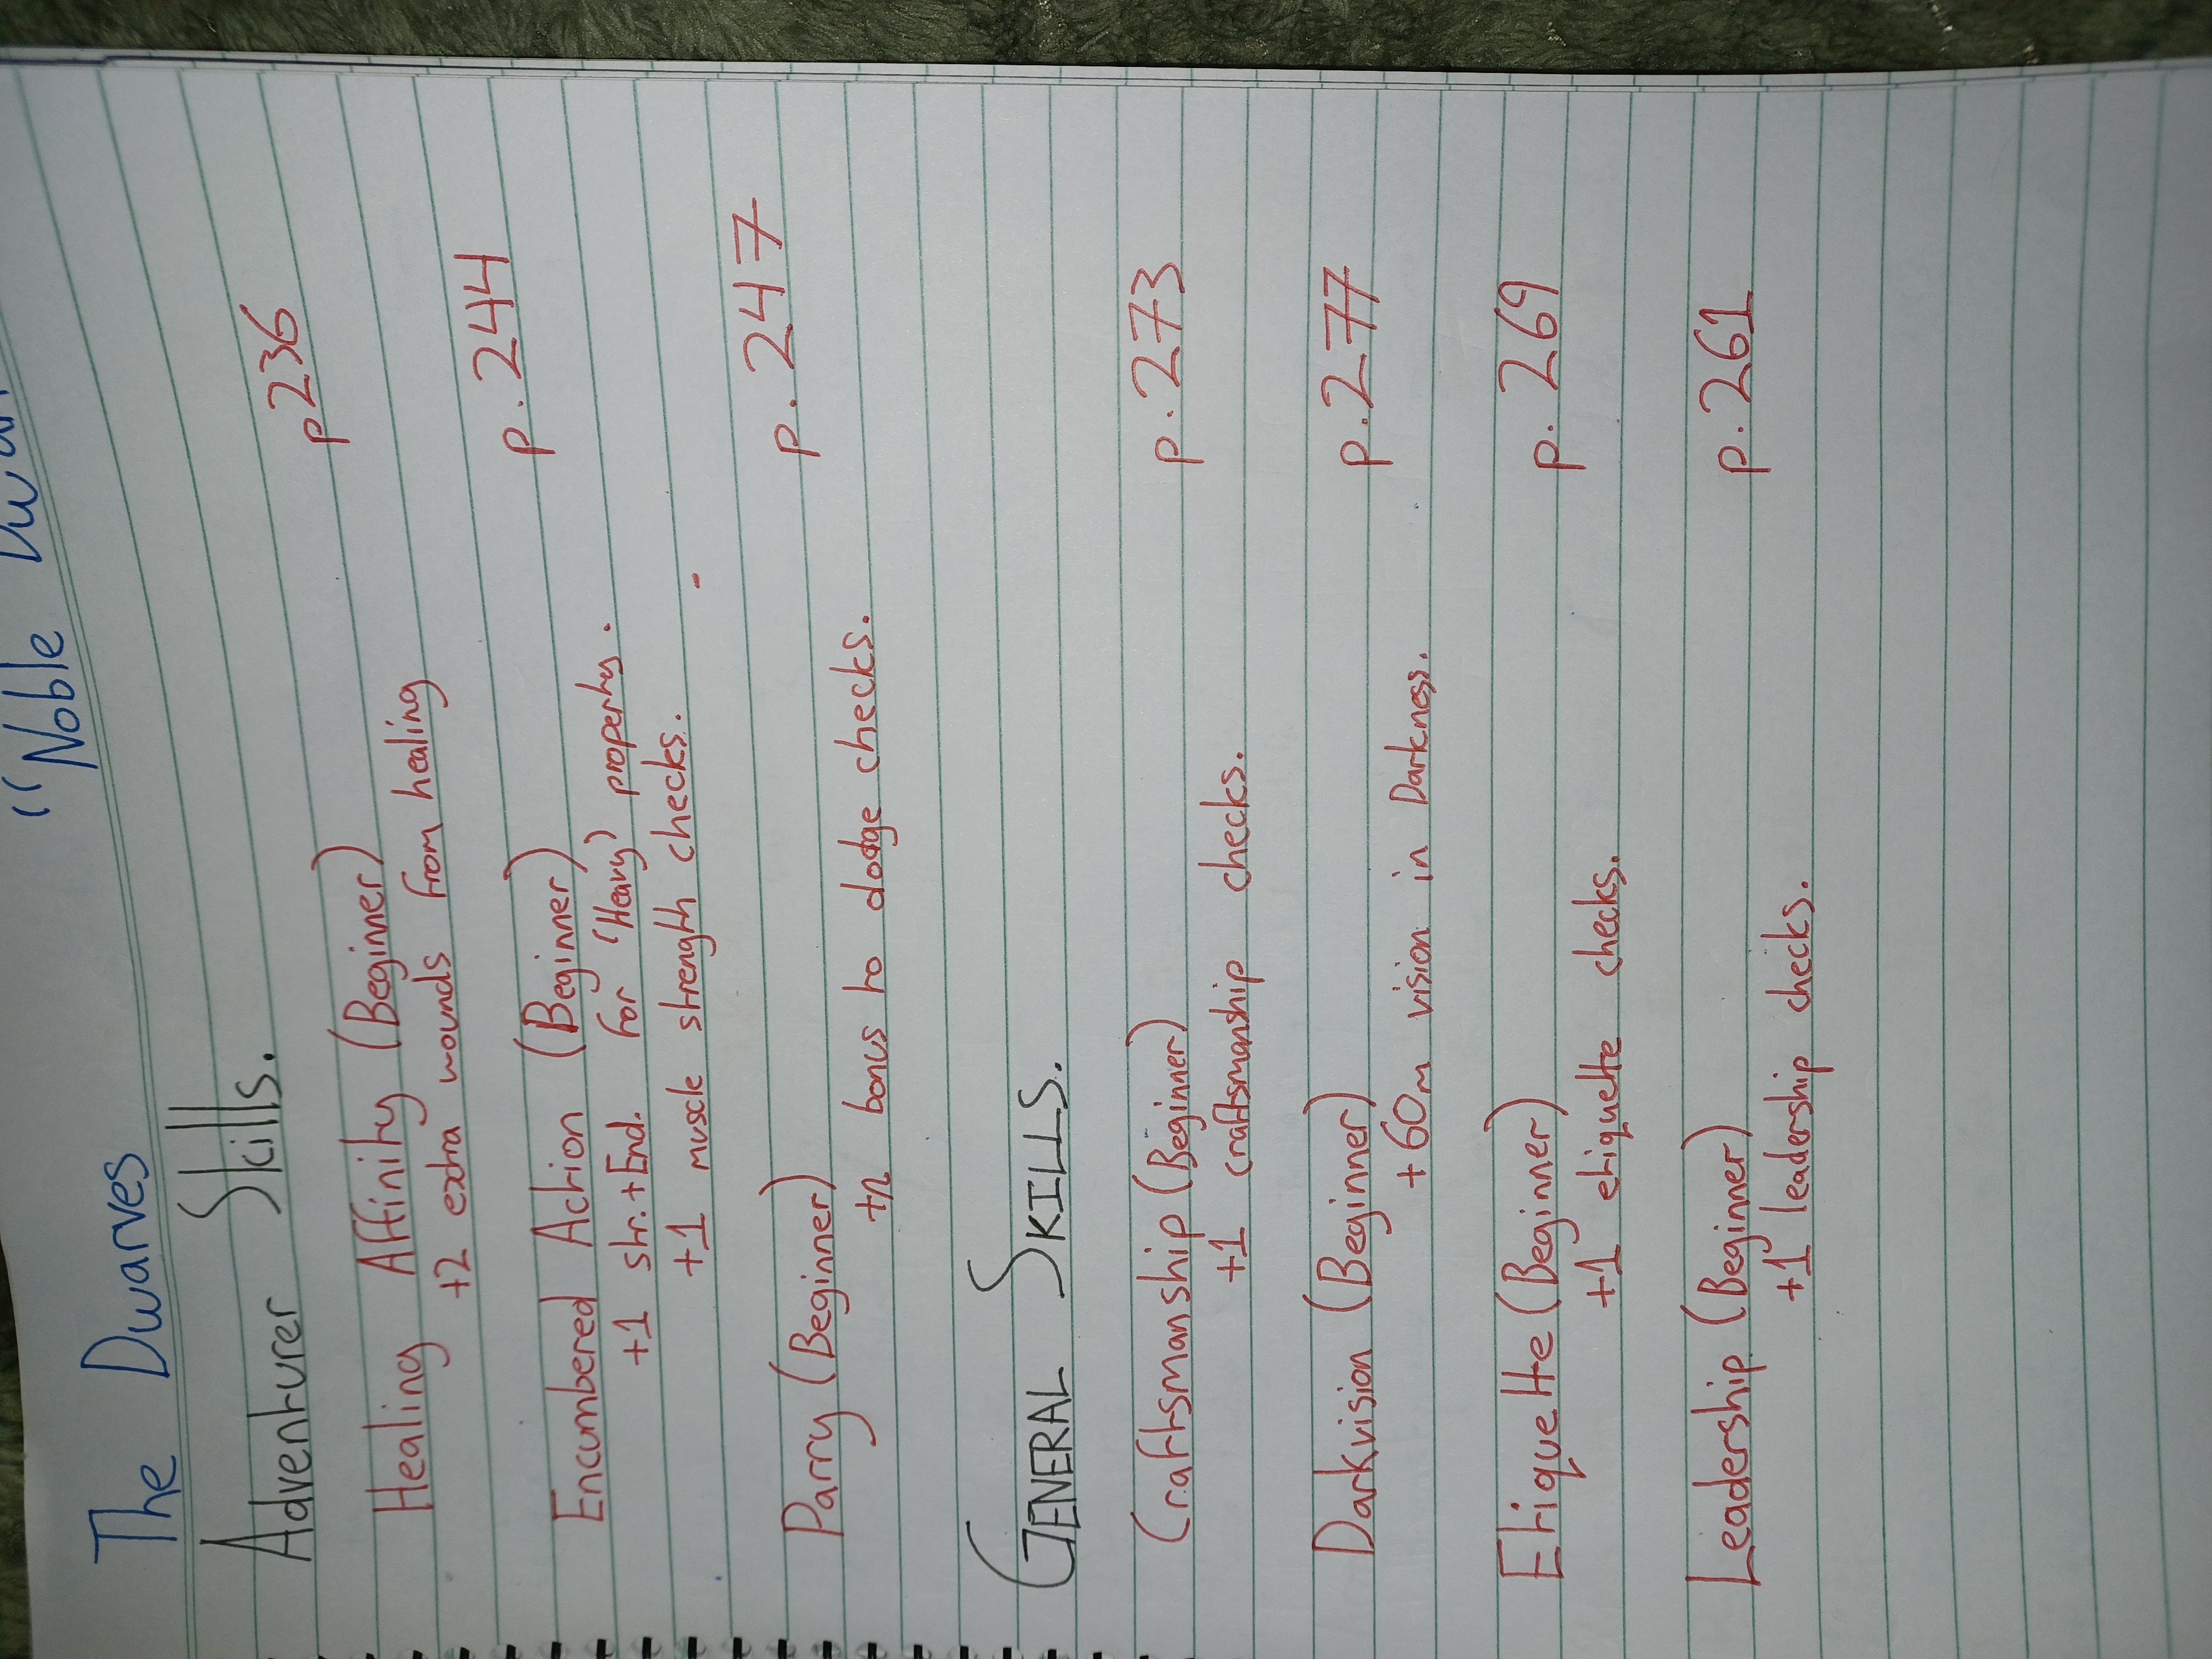 "Noble
The Dwarves
Adventurer Skills.
p236
Healing Affinity (Beginner)
+2 extra wounds from healing
p.244
Encumbered Action (Beginner)
+1 str. + End. for 'Heavy' property.
+1 muscle strength checks.
p. 247
Parry (Beginner)
+2 bonus to dodge checks.
GENERAL SKILLS.
Craftsmanship (Beginner) p.273
+1 craftsmanship checks.
Darkvision (Beginner) p.277
+60m vision in Darkness.
Etiquette (Beginner) p. 269
+1 etiquette checks.
Leadership (Beginner) p.261
+1 leadership checks.